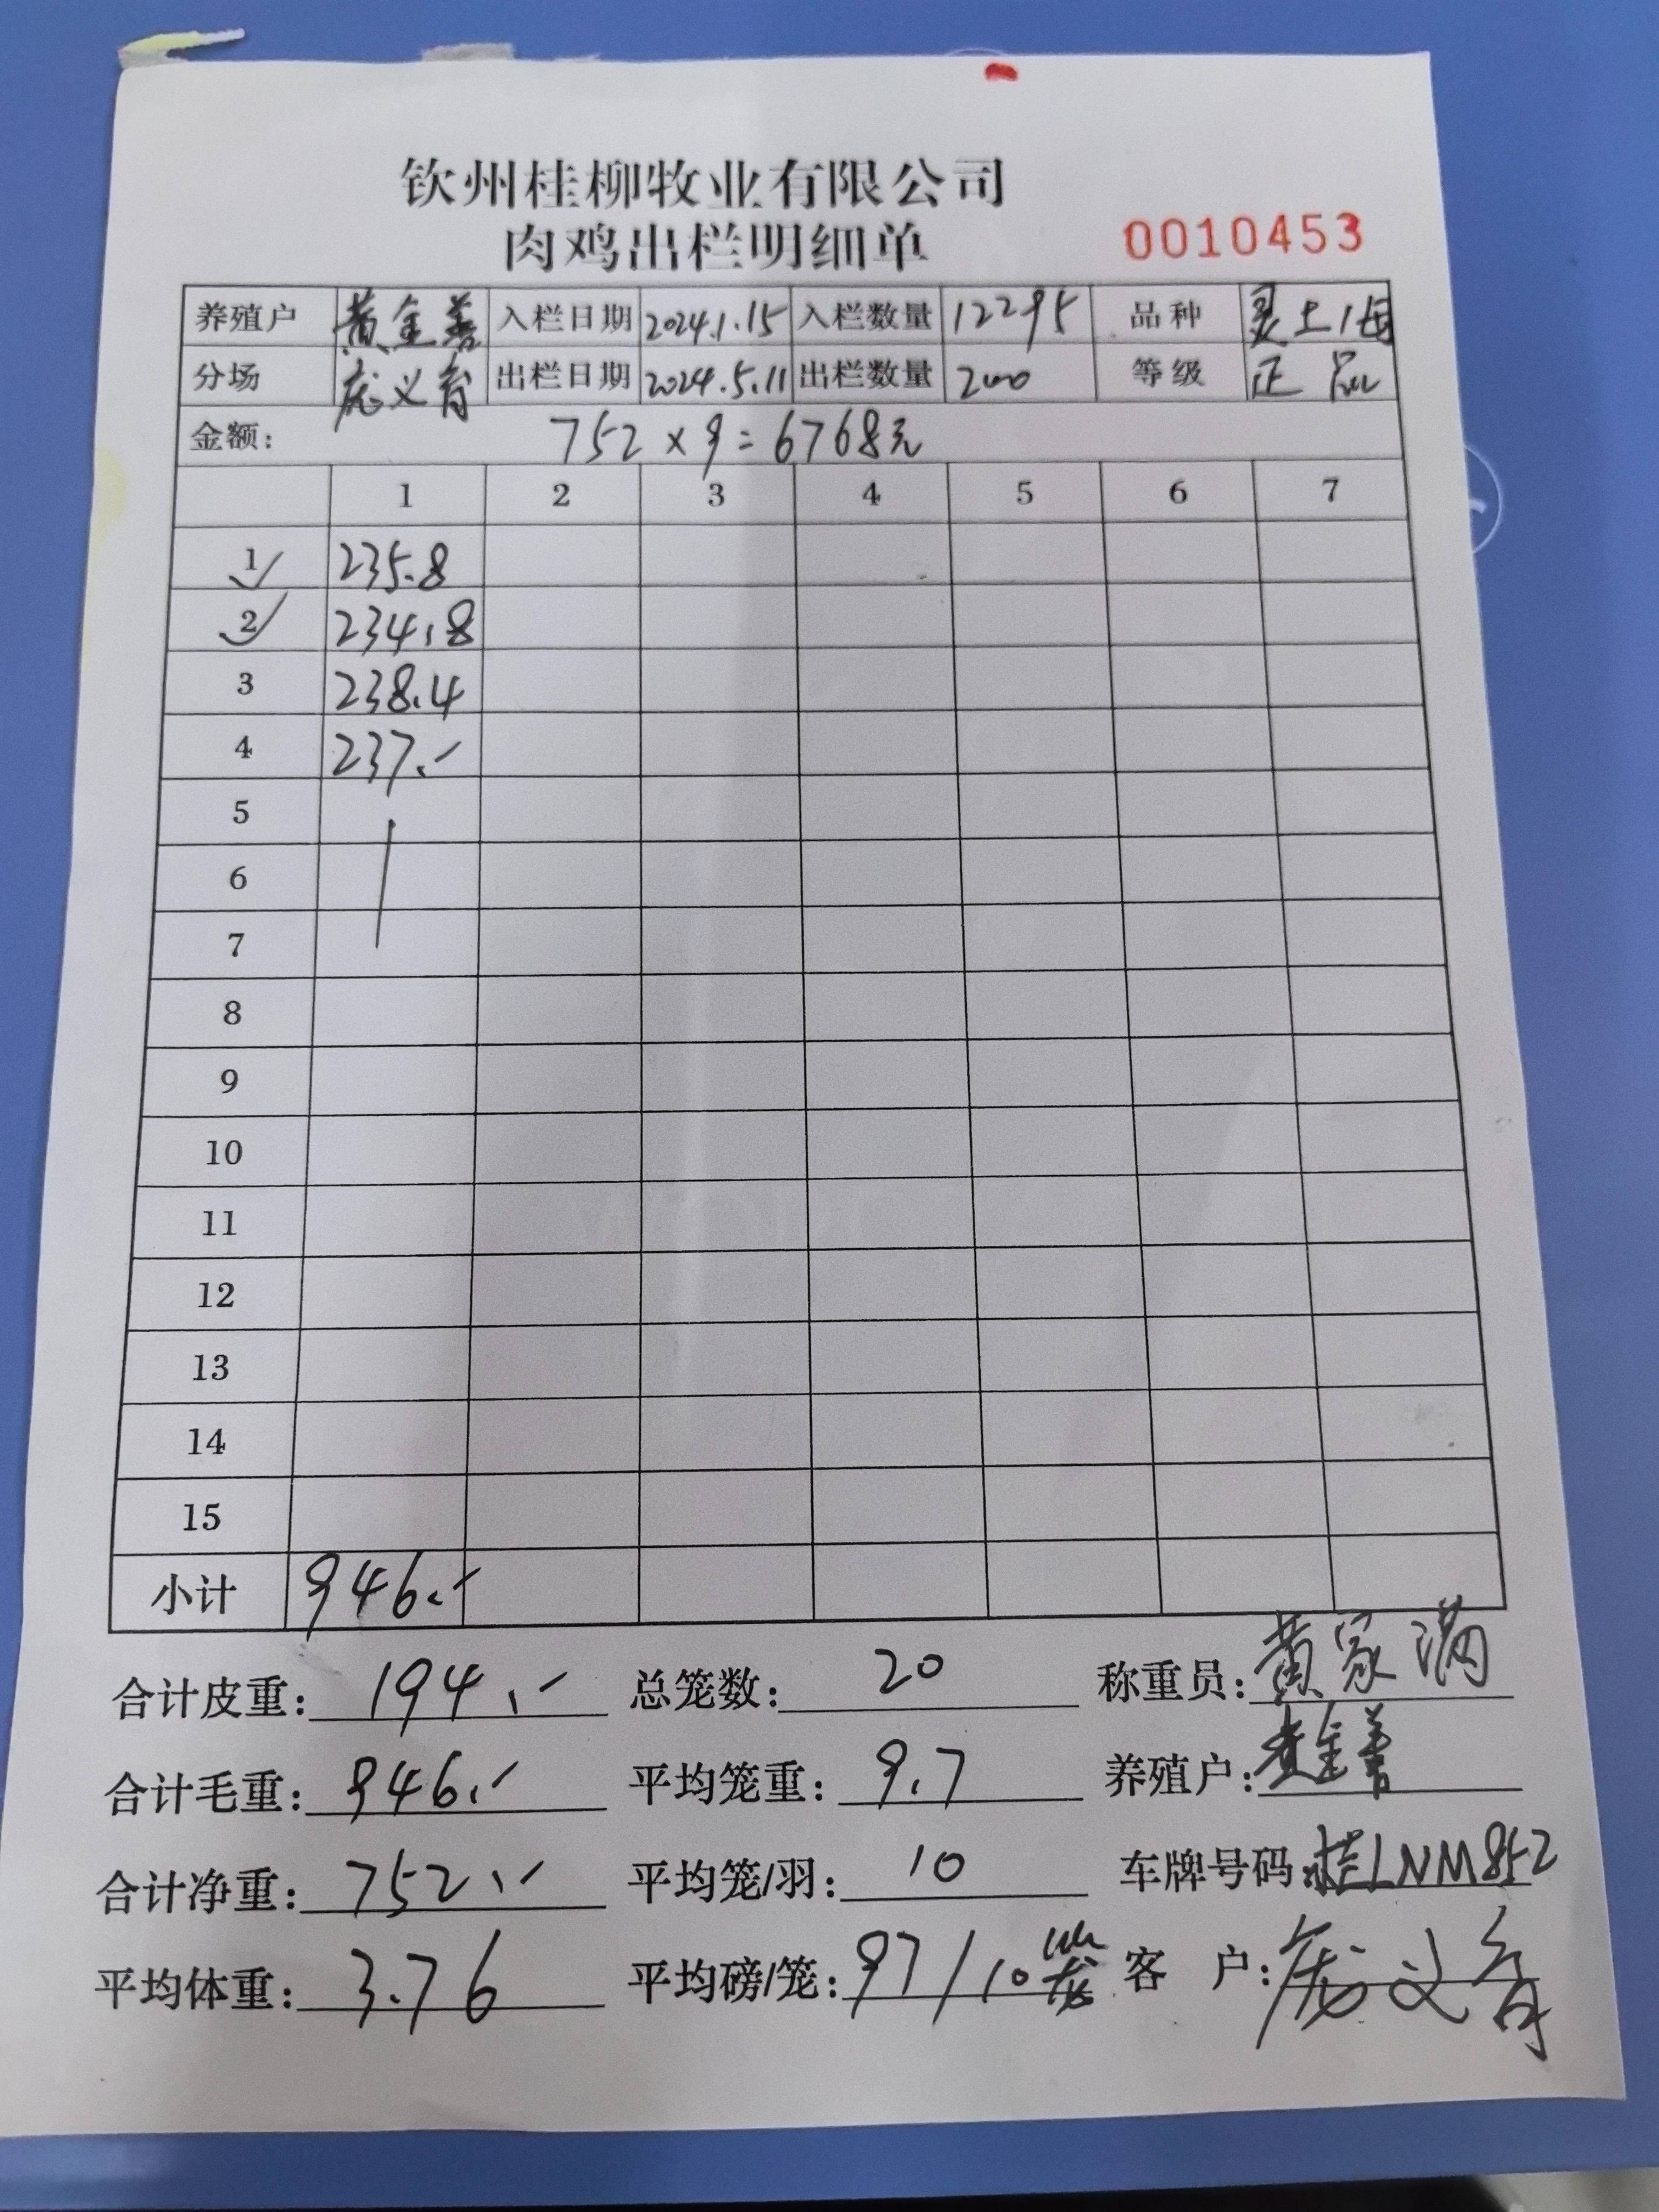 钦州桂柳牧业有限公司
肉鸡出栏明细单 0010453
养殖户 黄金善 入栏日期 2024.1.15 入栏数量 12295 品种 灵土1母
分场 庞义育 出栏日期 2024.5.11 出栏数量 200 等级 正品
金额: 752×9=6768元
1 2 3 4 5 6 7
1 235.8
2 234.8
3 238.4
4 237.-
5
6
7
8
9
10
11
12
13
14
15
小计 946.-
合计皮重: 194.- 总笼数: 20 称重员: 黄家满
合计毛重: 946.- 平均笼重: 9.7 养殖户: 黄金善
合计净重: 752.- 平均笼/羽: 10 车牌号码: 桂LNM852
平均体重: 3.76 平均磅/笼: 97/10 客户: 庞义育